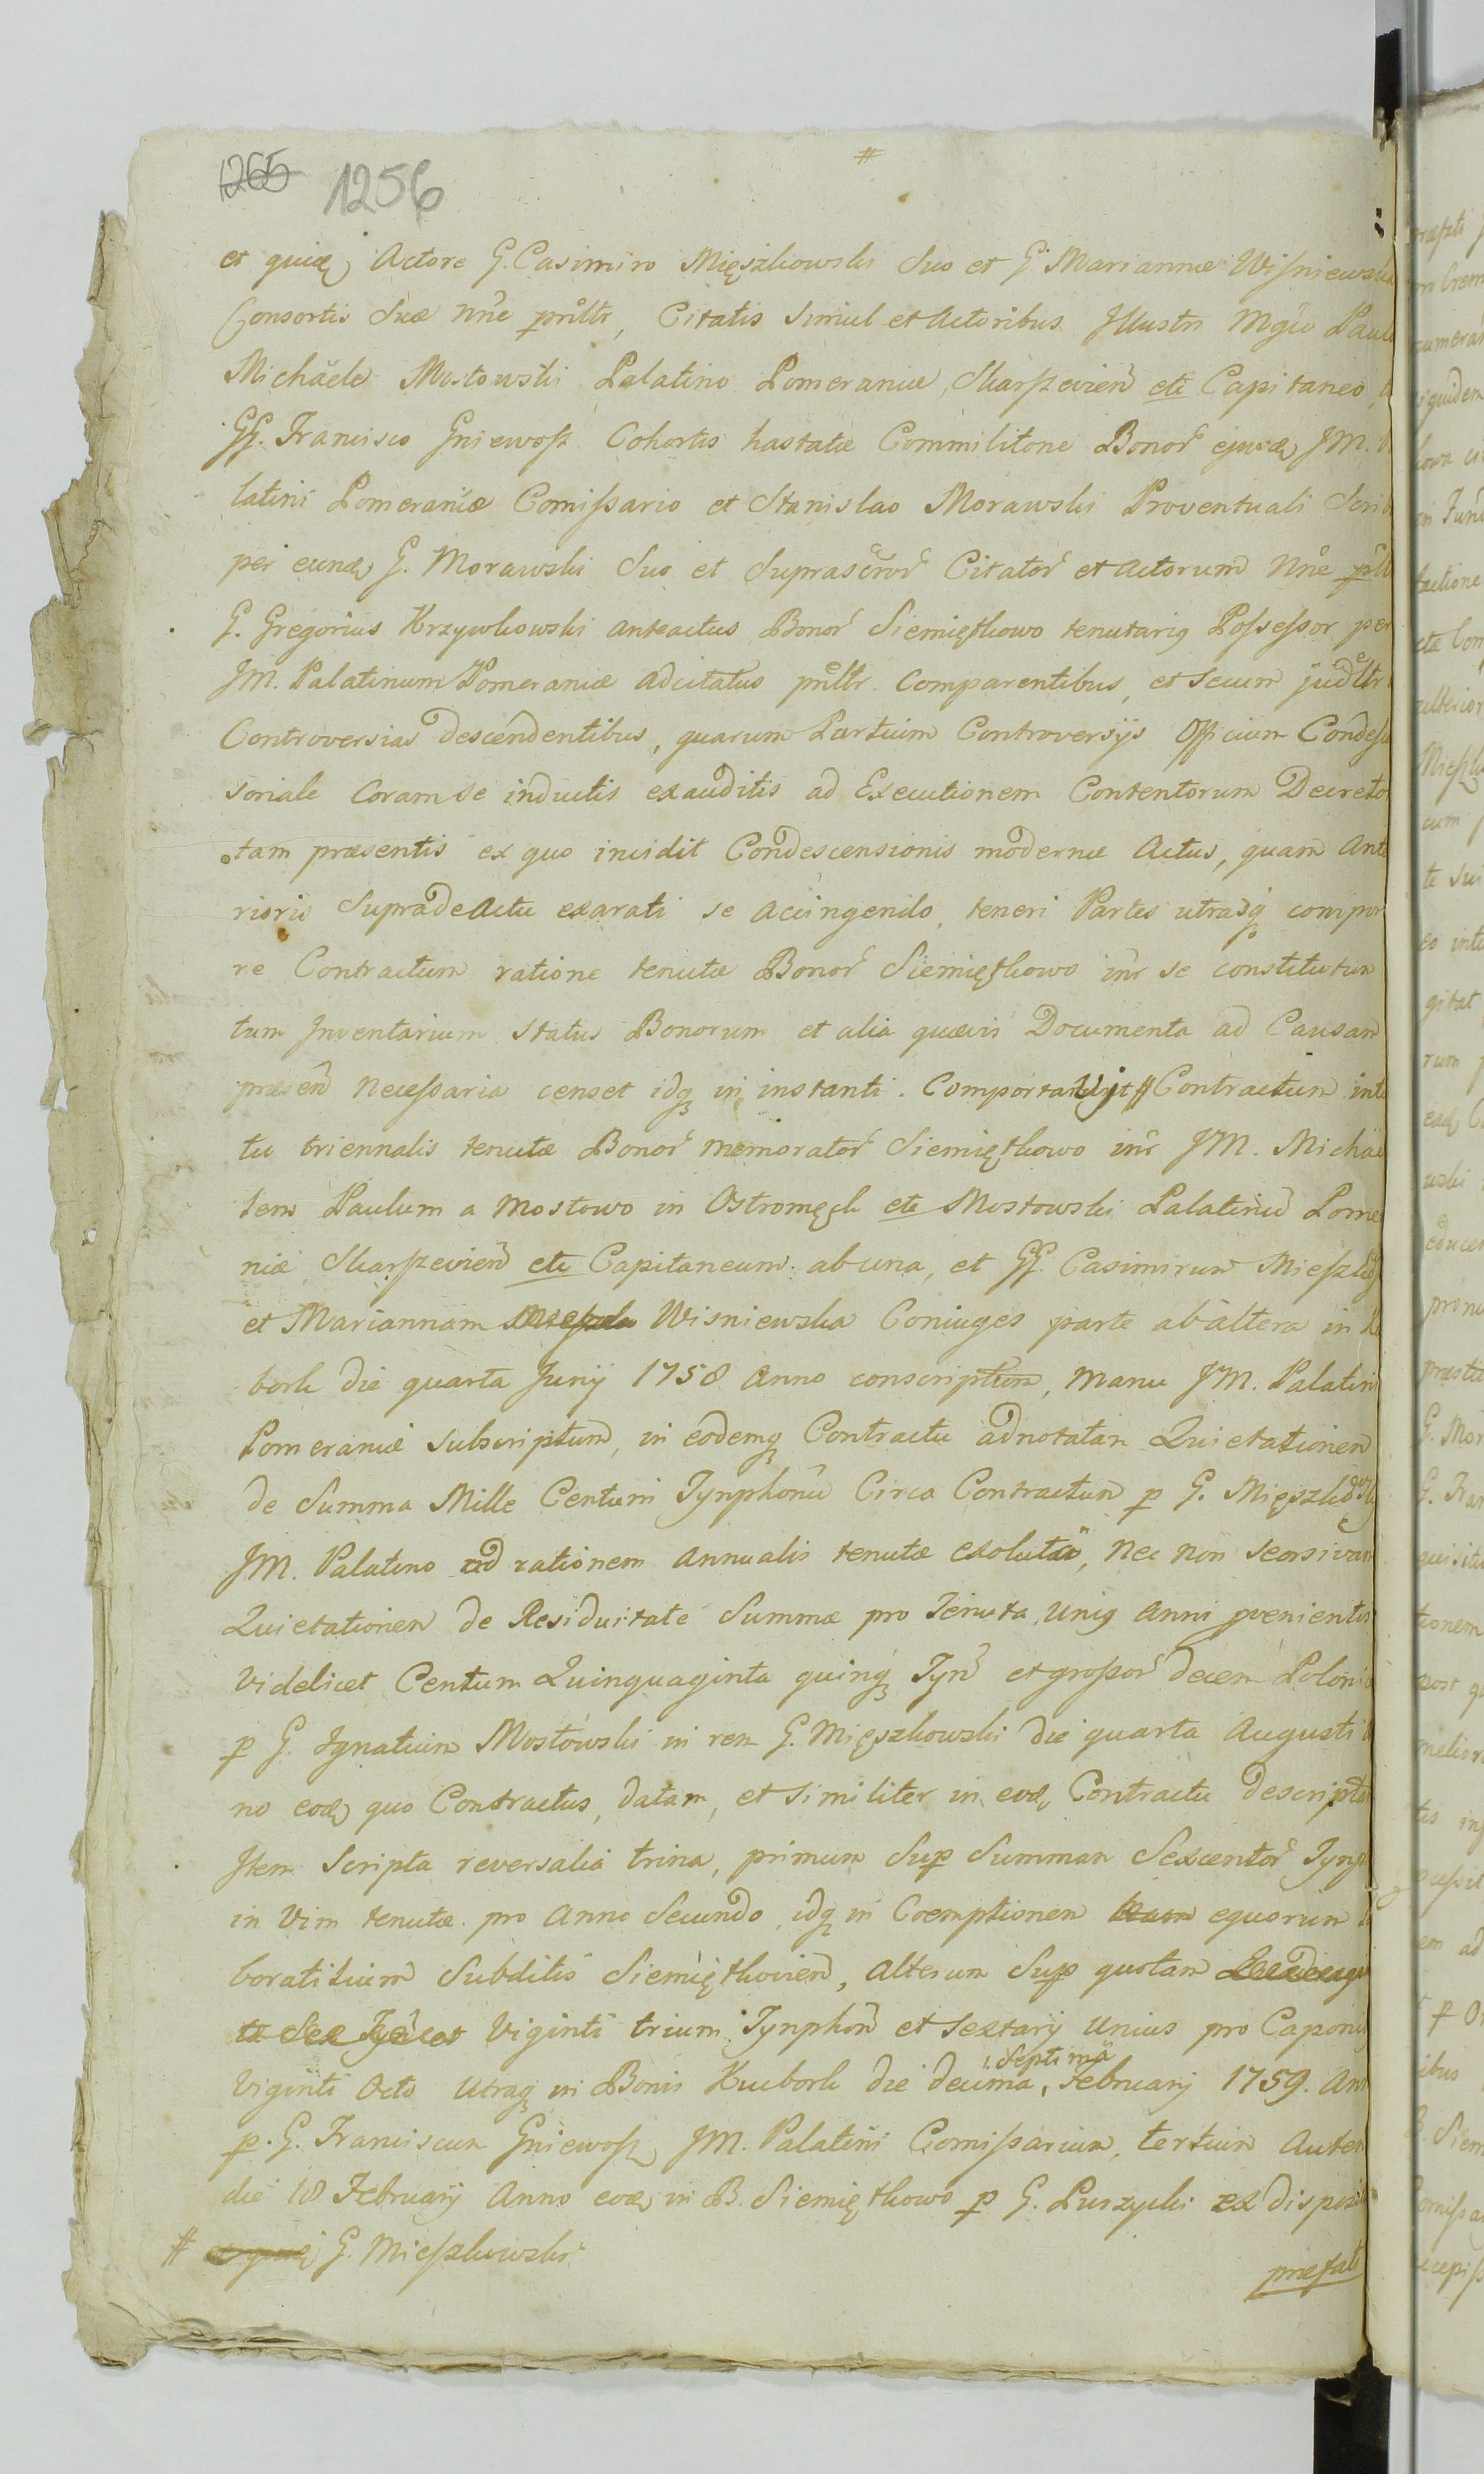 1265 1256
#
et quidē Actore G. Casimiro Mięszkowski Suo et G. Mariannæ Wiſniewska
Consortis Suæ nne prnltr, Citatis Simul et Actoribus Illustri Mgco Paulo
Michaele Mostowski Palatino Pomeraniæ, Skarſzevien etc Capitaneo,
GG. Francisco Gniewoſz Cohortis hastatæ Commilitone Bonor ejusdē JM.
latini Pomeraniæ Comiſsario et Stanislao Morawski Proventuali Scrib
per eundē G. Morawski Suo et Suprascror Citator et Actorum Nne
G. Gregorius Krzywkowski anteactus Bonor Siemiętkowo tenutariq Poſseſsor per
JM. Palatinum Pomeraniæ adcitatus pnltr. Comparentibus, et Secum judltr
Controversias descendentibus, quarum Partium Controversijs Officium Condeſce
soriale Coram se inductis exauditis ad Executionem Contentorum Decreto
tam præsentis ex quo incidit Condescensionis modernæ Actus, quam Ante
rioris Supra de Actu exarati se accingendo, teneri Partes utrasq compor
re Contractum ratione tenutæ Bonor Siemiętkowo inr se constitutum
tum Inventarium Status Bonorum et alia quævis Documenta ad Causam
præsen neceſsaria censet idq in instanti. Comportavit # Contractum intu
tu triennalis tenutæ Bonor memorator Siemiętkowo inr JM. Michae
lem Paulum a Mostowo in Ostromęck etc Mostowski Palatinu Pome
niæ Skarſzevien etc Capitaneum ab una, et GG. Casimirum Mieſzkow
et Mariannam Wisniewska Coniuges parte ab altera in Ku
bork die quarta Junij 1758 Anno conscriptum, Manu JM. Palatini
Pomeraniæ subscriptum, in eodemq Contractu adnotatam Quietationem
de Summa Mille Centum Tynphonu Circa Contractum p G. Mięszkowski
JM. Palatino ad rationem Annualis tenutæ exolutæ, nec non seorsivam
Quietationem de Residuitate Summæ pro Tenuta Uniq Anni provenientis
videlicet Centum Quinquaginta quinq Tyn et groſsor decem Poloni
p G. Ignatium Mostowski in rem G. Mięszkowski die quarta Augusti
no eodē quo Contractus, datam, et similiter in eodē Contractu descriptam
Item Scripta reversalia trina, primum Sup Summam Sexcentor Tynp
in Vim tenutæ pro Anno Secundo, idq in Coemptionem equorum
boratitium Subditis Siemiętkovien, alterum Sup quotam
Viginti trium Tynphon et Sextarij Unius pro Caponi
Septima
Viginti Octo Utraq in Bonis Kuebork die decima, February 1759. Ann
p. G. Franciscum Gniewoſz JM. Palatini Comiſsarium, tertium Autem
die 18 February Anno eodē in B. Siemiętkowo p G. Puszycki ex disposi
# G. Mieſzkowski
præfati